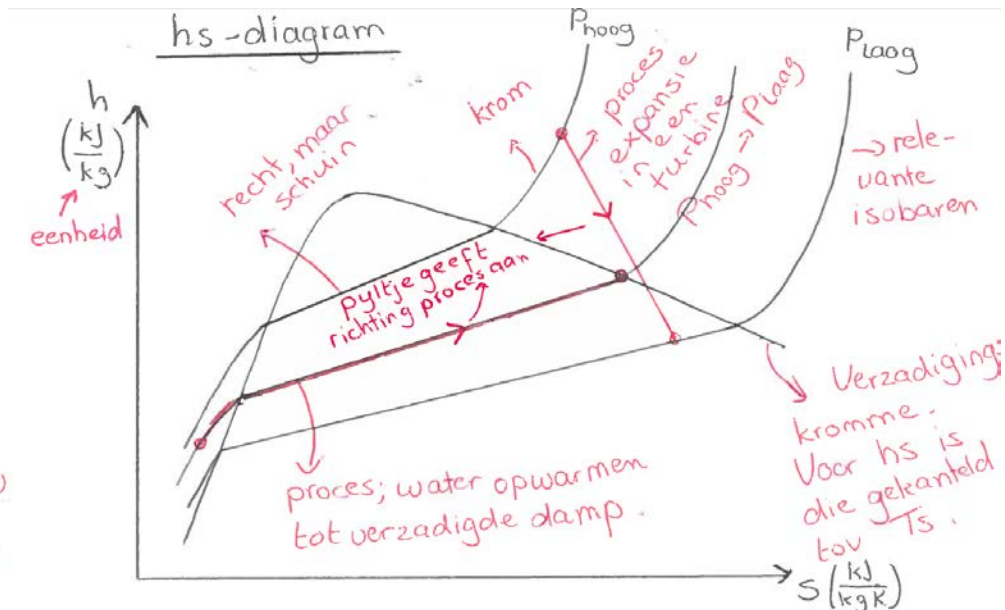 hs-diagram
Phoog
PLaag
h
(kJ/kg)
eenheid
recht, maar
schuin
krom
proces
expansie
in een
turbine
Phoog → PLaag
→ rele-
vante
isobaren
pijltje geeft
richting proces aan
proces; water opwarmen
tot verzadigde damp.
Verzadigings
kromme.
Voor hs is
die gekanteld
tov Ts.
S (kJ/kgK)